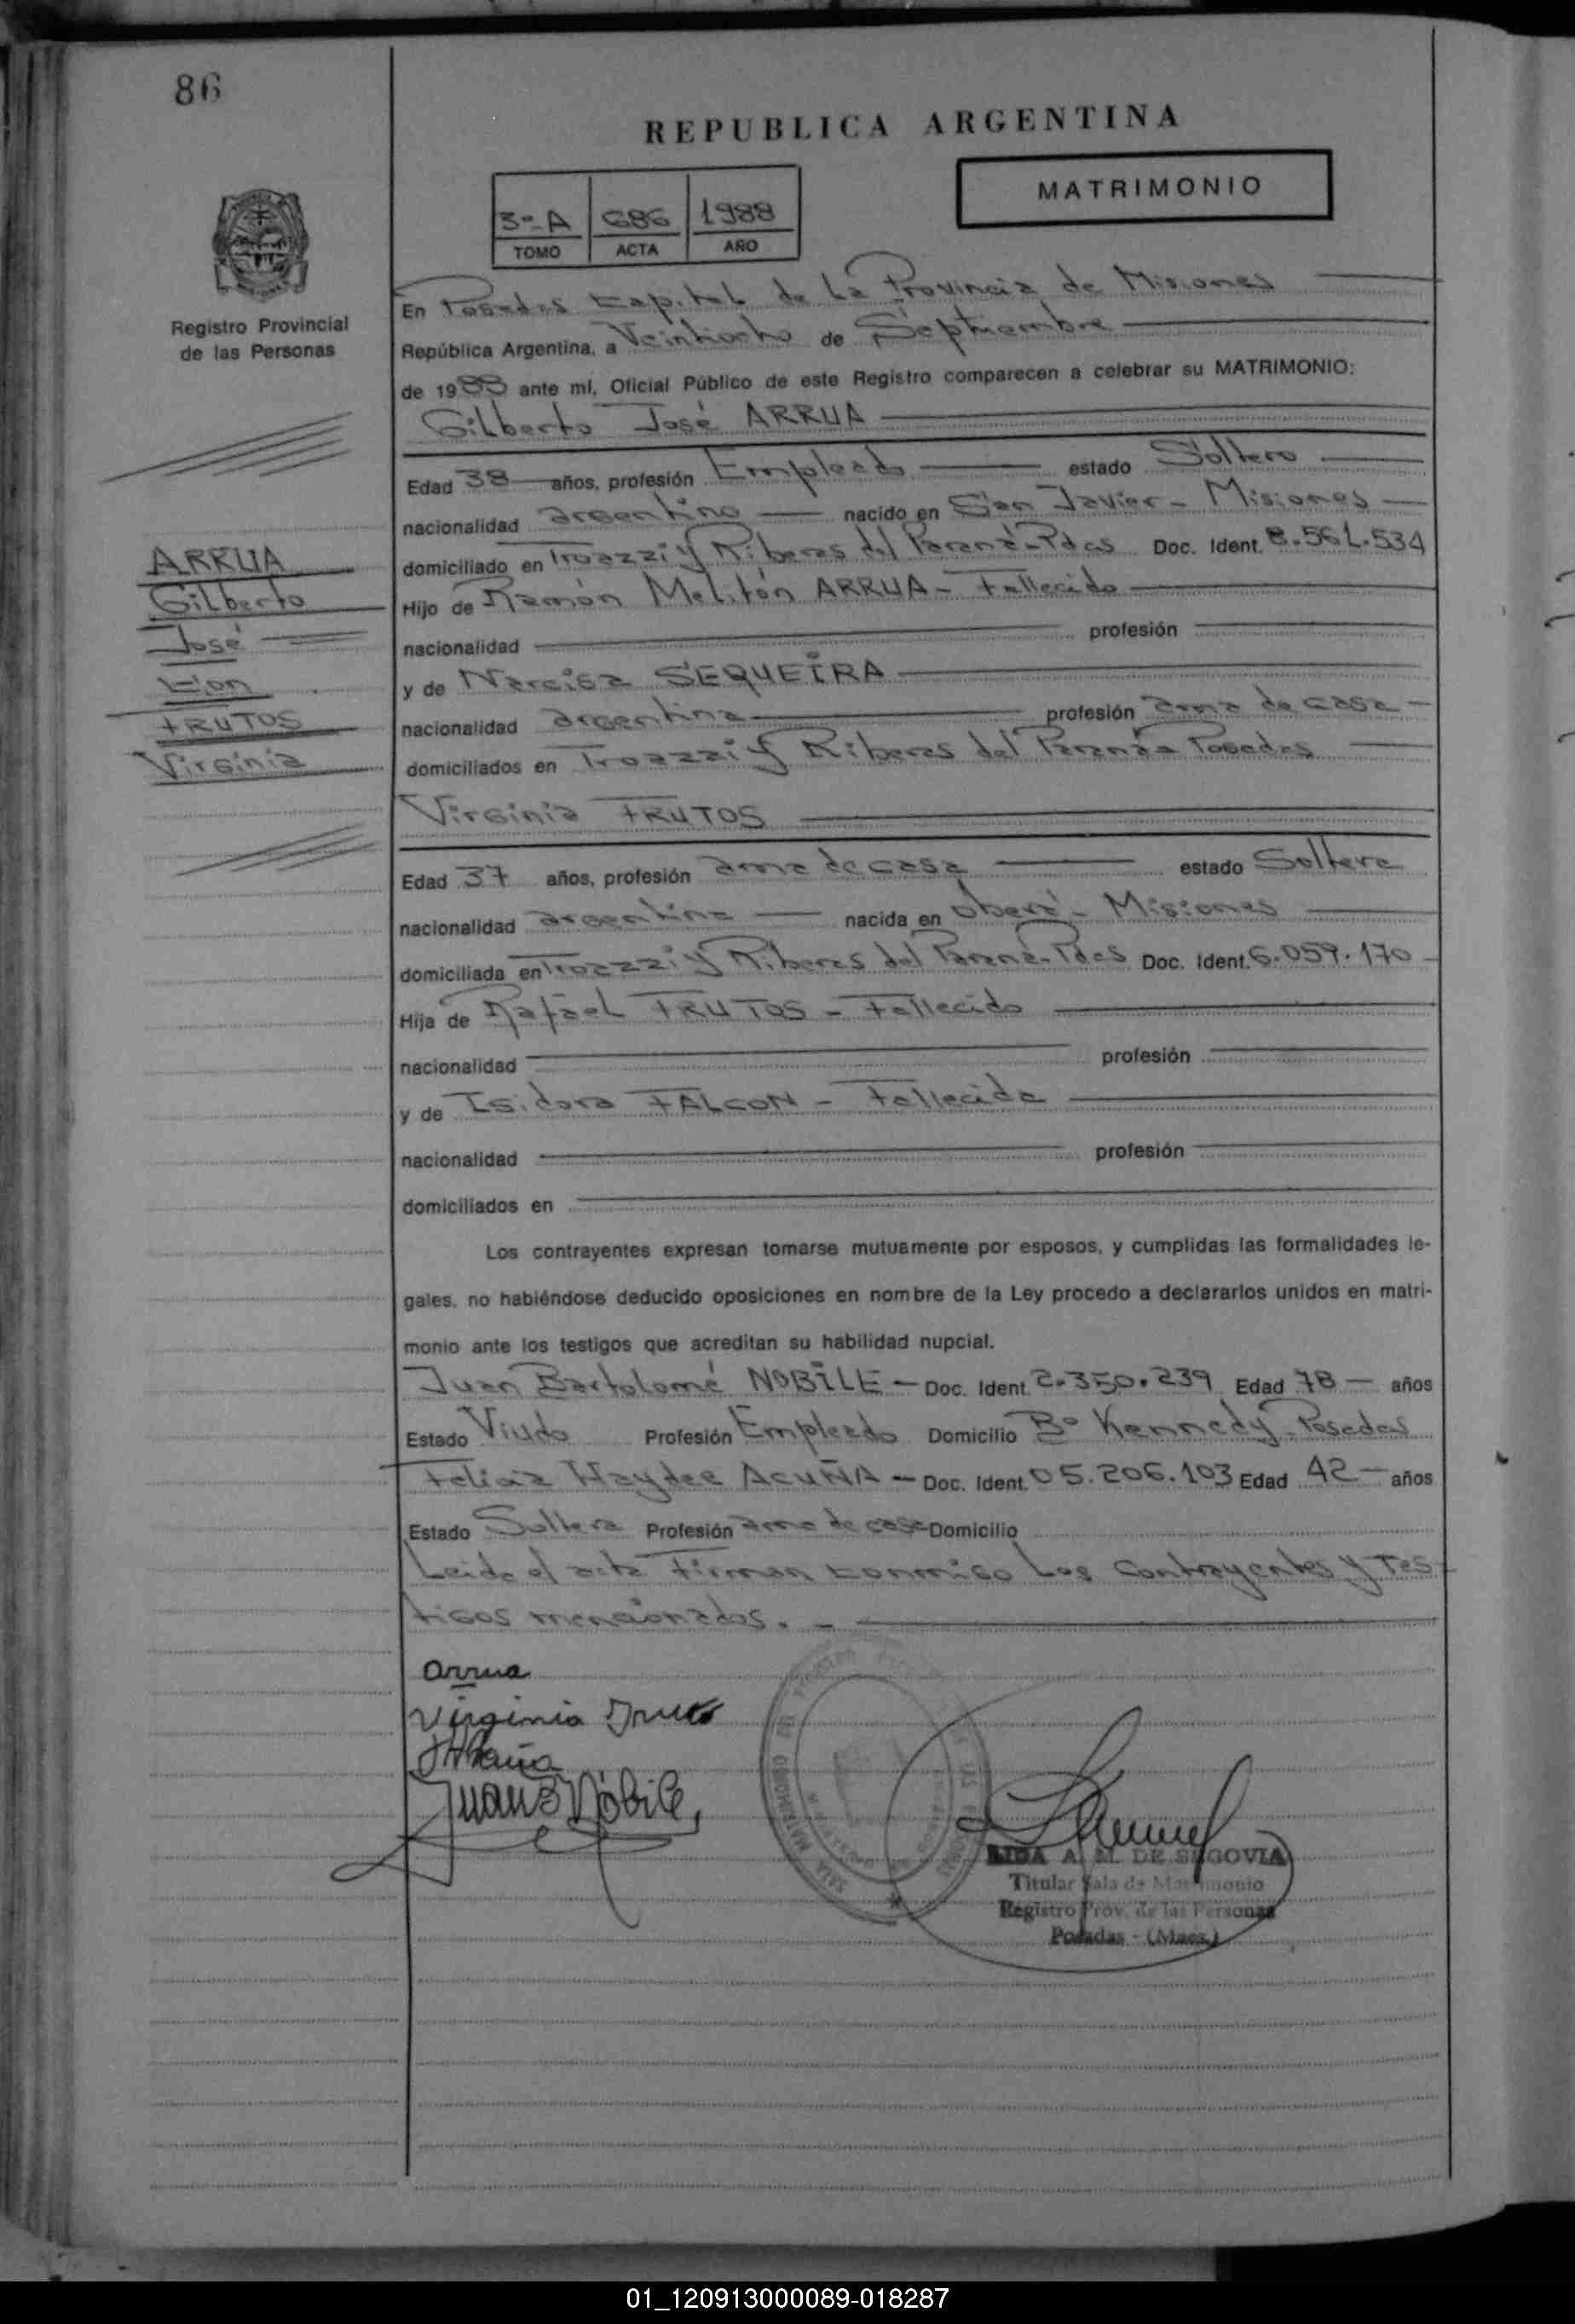 86
REPUBLICA ARGENTINA
MATRIMONIO
3º A 686 1988
TOMO ACTA AÑO
Registro Provincial
de las Personas
En Posadas Capital de La Provincia de Misiones
República Argentina, a Veintiocho de Septiembre
de 1988 ante mí, Oficial Público de este Registro comparecen a celebrar su MATRIMONIO:
Gilberto José ARRUA
Edad 38 años, profesión Empleado estado Soltero
nacionalidad argentino nacido en San Javier - Misiones
domiciliado en Troazzi y Riberas del Paraná - Pdas Doc. Ident. 8.561.534
Hijo de Ramón Melitón ARRUA - Fallecido
nacionalidad profesión
y de Narcisa SEQUEIRA
nacionalidad argentina profesión ama de casa
domiciliados en Troazzi y Riberas del Paraná Posadas
ARRUA
Gilberto
José
Con
FRUTOS
Virginia
Virginia FRUTOS
Edad 37 años, profesión ama de casa estado Soltera
nacionalidad argentina nacida en Oberá - Misiones
domiciliada en Troazzi y Riberas del Paraná - Pdas Doc. Ident. 6.059.170
Hija de Rafael FRUTOS - Fallecido
nacionalidad profesión
y de Isidora FALCON - Fallecida
nacionalidad profesión
domiciliados en
Los contrayentes expresan tomarse mutuamente por esposos, y cumplidas las formalidades le-
gales, no habiéndose deducido oposiciones en nombre de la Ley procedo a declararlos unidos en matri-
monio ante los testigos que acreditan su habilidad nupcial.
Juan Bartolomé NOBILE - Doc. Ident. 2.350.239 Edad 78 años
Estado Viudo Profesión Empleado Domicilio Bº Kennedy - Posadas
Haydee ACUÑA - Doc. Ident. 05.206.103 Edad 42 años
Estado Soltera Profesión ama de casa Domicilio
Leida el acta Firman conmigo Los Contrayentes y Tes
tigos mencionados. -
Arrua
Virginia Frutos
Juan B Nóbile
LIDA A. M. DE SEGOVIA
Titular Sala de Matrimonio
Registro Prov. de las Personas
Posadas - (Mnes.)
01_120913000089-018287